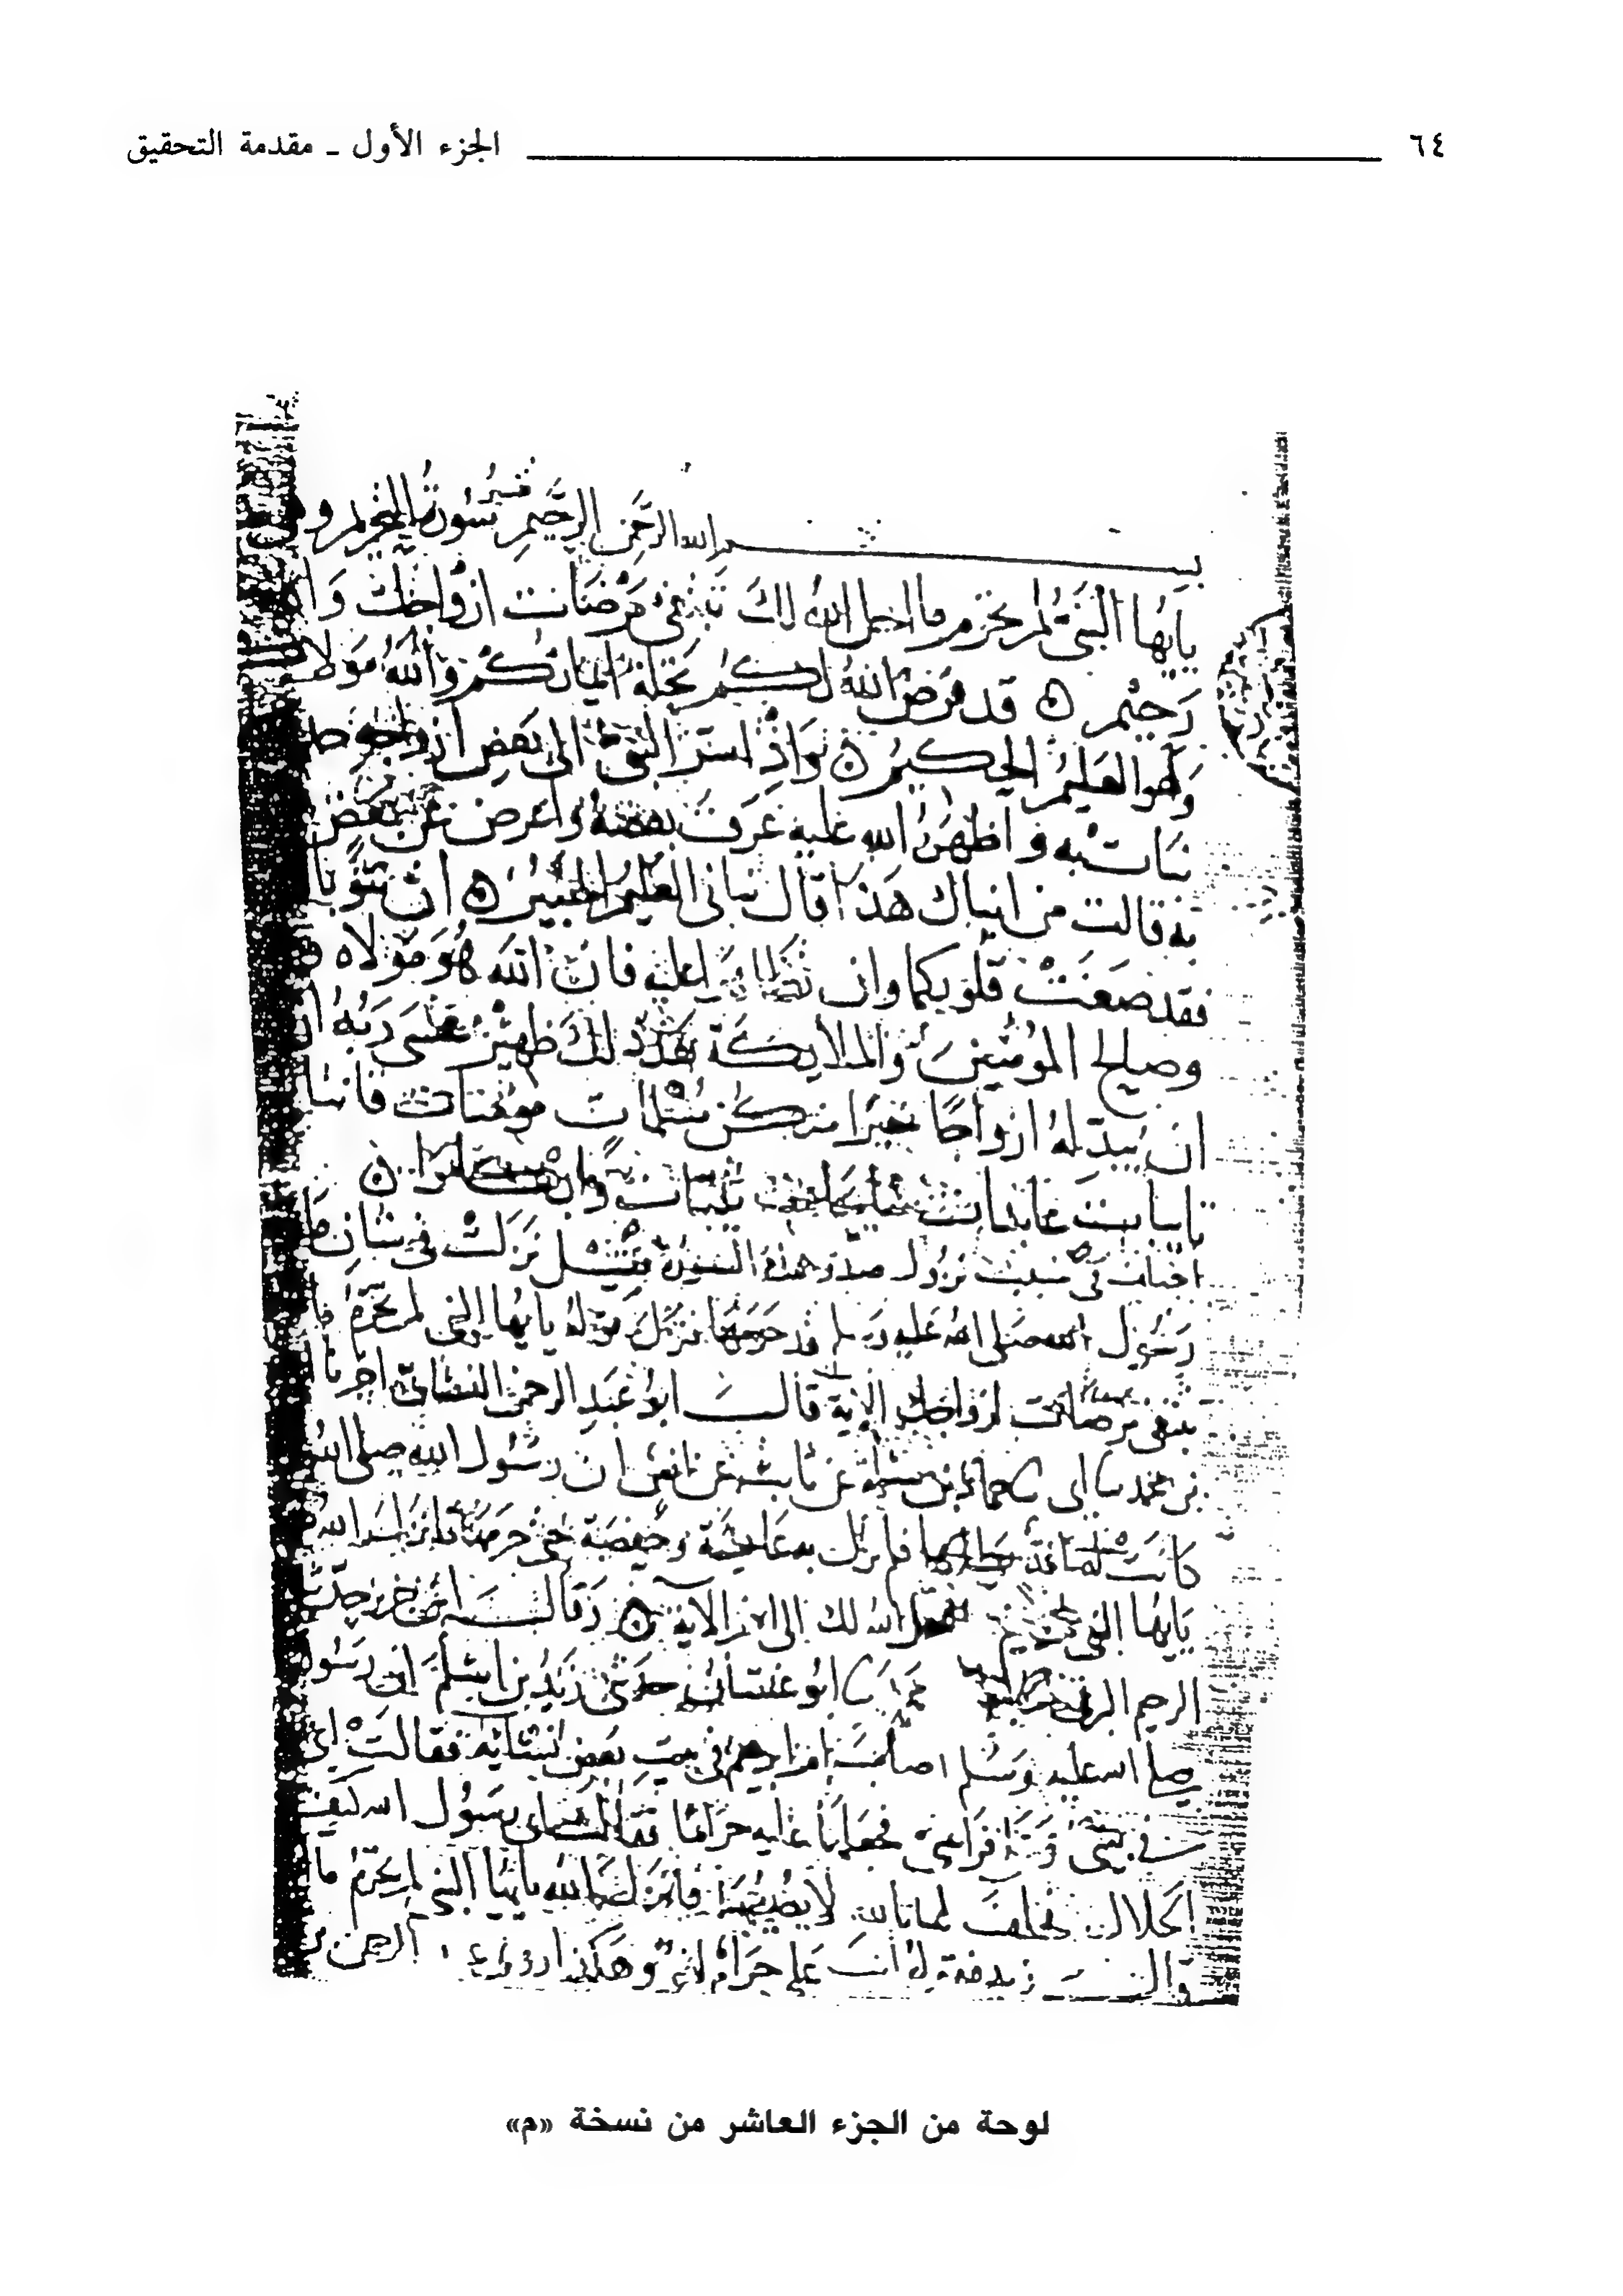 ٦٤ الجزء الأول ـ مقدمة التحقيق
بسم الله الرحمن الرحيم تفسير سورة التحريم وهي
يايها النبي لم تحرم ما احل الله لك تبتغي مرضات ازواجك وا
رحيم قد فرض الله لكم تحلة ايمانكم والله مولا
وهو العليم الحكيم واذ اسر النبي الى بعض ازواجه
نبات به واظهره الله عليه عرف بعضه واعرض عن بعض
به قالت من انباك هذا قال نباني العليم الخبير ان تتوبا
فقد صغت قلوبكما وان تظاهرا عليه فان الله هو مولاه
وصالح المومنين والملايكة بعد ذلك ظهير عسى ربه
ان يبدله ازواجا خيرا منكن مسلمات مومنات قانتا
تايبات عابدات سايحات ثيبات وابكارا
اختلف في سبب نزول صدر هذه السورة فقيل نزلت في شان
رسول الله صلى الله عليه وسلم قد حرمها فنزل قوله يايها النبي لم تحرم ما
تبتغي مرضات ازواجك الاية قال ابو عبد الرحمن النسائي اخبرنا
بن محمد ابي حماد بن سلمة عن ثابت عن انس ان رسول الله صلى الله
كانت له امة يطاها فلم تزل به عايشة وحفصة حتى حرمها فانزل الله
يايها النبي لم تحرم ما احل الله لك الى اخر الاية وقال ابن جرير حدثني
الرحيم البرقي ابو غسان حدثني زيد بن اسلم ان رسول
صلى الله عليه وسلم اصاب ام ابراهيم في بيت بعض نسائه فقالت اي
في بيتي وعلى فراشي فجعلها عليه حراما فقالت اي رسول الله كيف
الحلال فحلف لها بالله لا يصيبها فانزل الله يايها النبي لم تحرم ما
قال زيد فقوله انت علي حرام لغو وهكذا روى
لوحة من الجزء العاشر من نسخة «م»